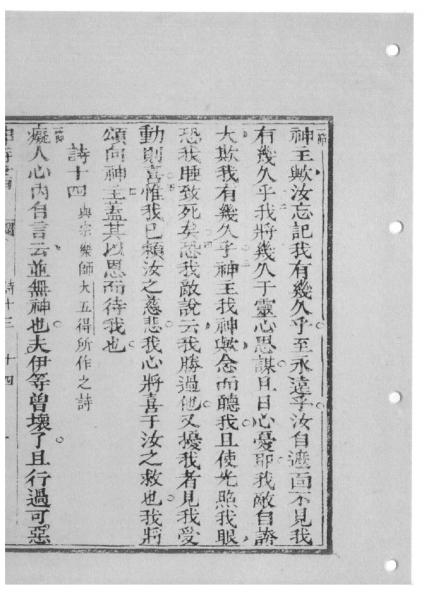 神主歟汝忘記我有幾久乎至永遠乎汝自遮面不見我
有幾久乎我將幾久于靈心思謀且日心憂耶我敵自誇
大欺我有幾久乎神主我神歟念而聽我且使光照我眼
恐我睡致死矣恐我敵說云我勝過他又擾我者見我受
動則喜惟我已賴汝之慈悲我心將喜于汝之救也我將
頌向神主蓋其以恩而待我也
詩十四 與宗樂師大五得所作之詩
癡人心內自言云並無神也夫伊等曾壞了且行過可惡
詩十三 十四